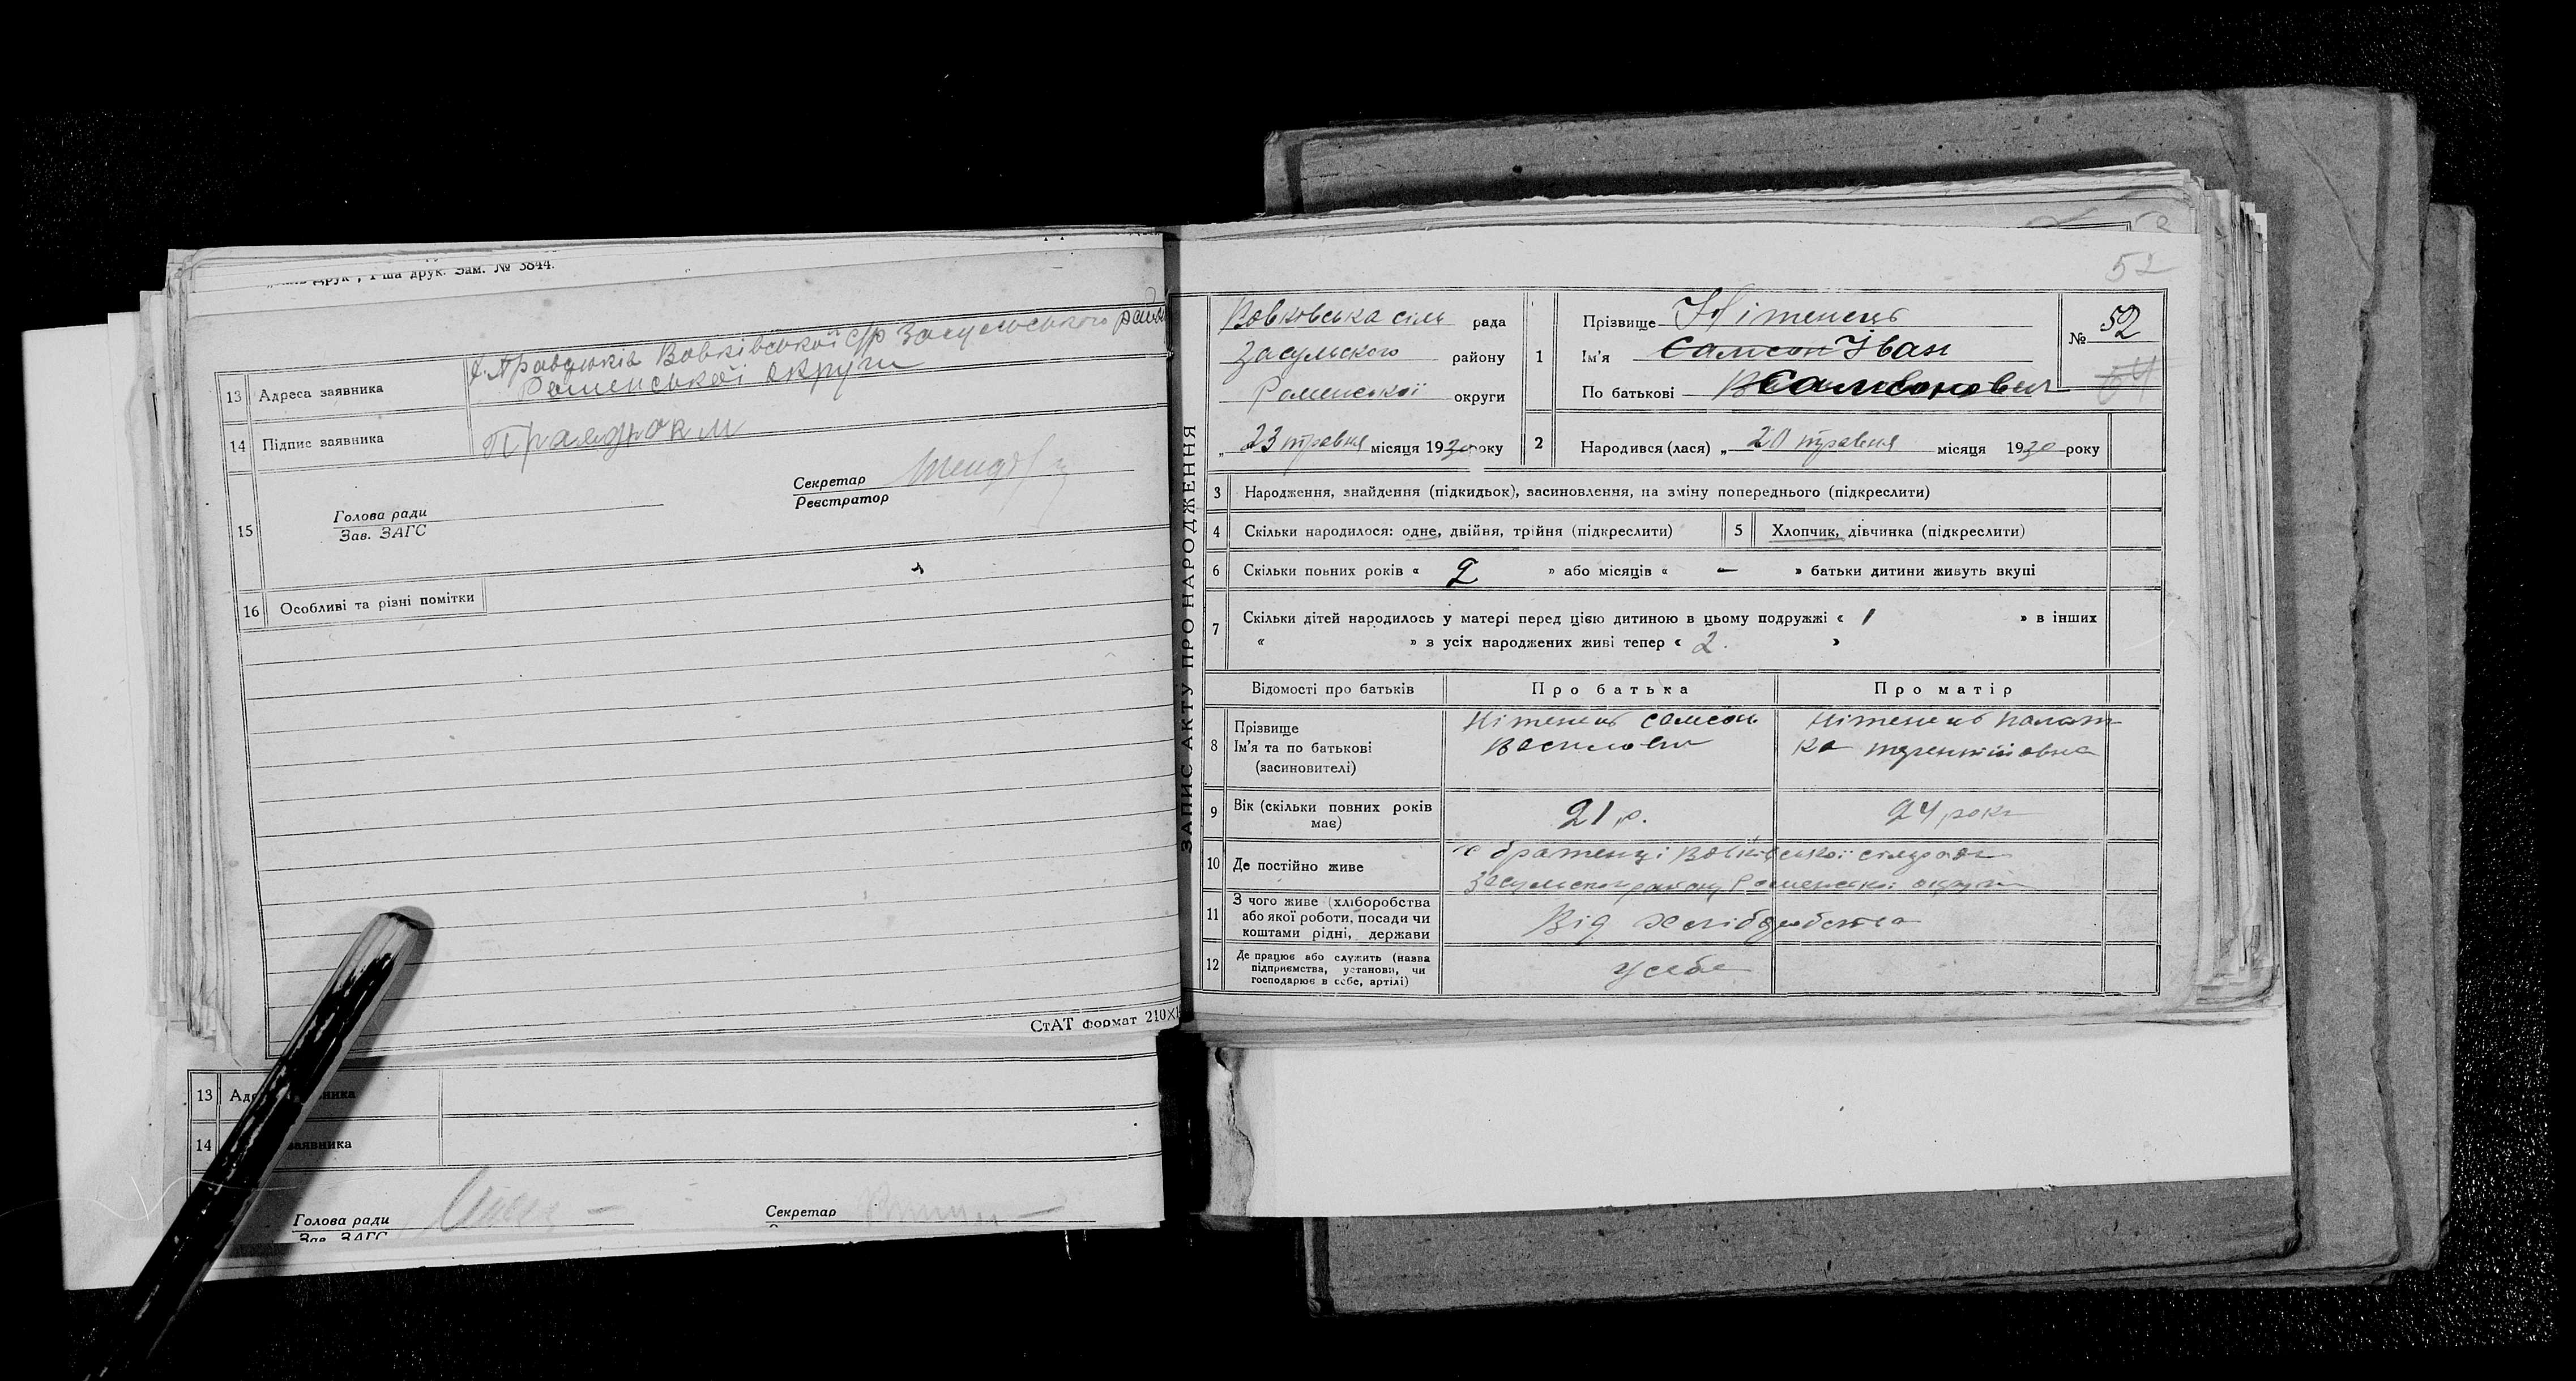 друк. Зам. № 3844.
13 Адреса заявника х. Правдюків Вовківської с/р Засульського району
Роменської округи
14 Підпис заявника Правдюк м
15 Голова ради
Зав. ЗАГС
Секретар
Реєстратор
16 Особливі та різні помітки
СтАТ формат 210×1
13 Ад ника
14 заявника
Голова ради
Зав. ЗАГС
Секретар
52
ЗАПИС АКТУ ПРО НАРОДЖЕННЯ
Вовковська сіль рада
Засульского району
Роменської округи
„ 23 травня місяця 1930 року
1 Прізвище Нітенець
Ім'я Самсон Іван
По батькові Самсонович
№ 52
64
2 Народився (лася) „ 20 травня місяця 1930 року
3 Народження, знайдення (підкидьок), засиновлення, на зміну попереднього (підкреслити)
4 Скільки народилося: одне, двійня, трійня (підкреслити) 5 Хлопчик, дівчинка (підкреслити)
6 Скільки повних років « 2 » або місяців « — » батьки дитини живуть вкупі
7 Скільки дітей народилось у матері перед цією дитиною в цьому подружжі « 1 » в інших
« » з усіх народжених живі тепер « 2. »
Відомості про батьків Про батька Про матір
8 Прізвище
Ім'я та по батькові
(засиновителі)
Нітенець Самсон
Василович
Нітенець Палаж
ка терентіївна
9 Вік (скільки повних років
має)
21 р.
24 роки
10 Де постійно живе
х братенці Вовківської сільради
Засульского району Роменської округи
11 З чого живе (хліборобства
або якої роботи, посади чи
коштами рідні, держави
Від хліборобства
12 Де працює або служить (назва
підприємства, установи, чи
господарює в себе, артілі)
у себе